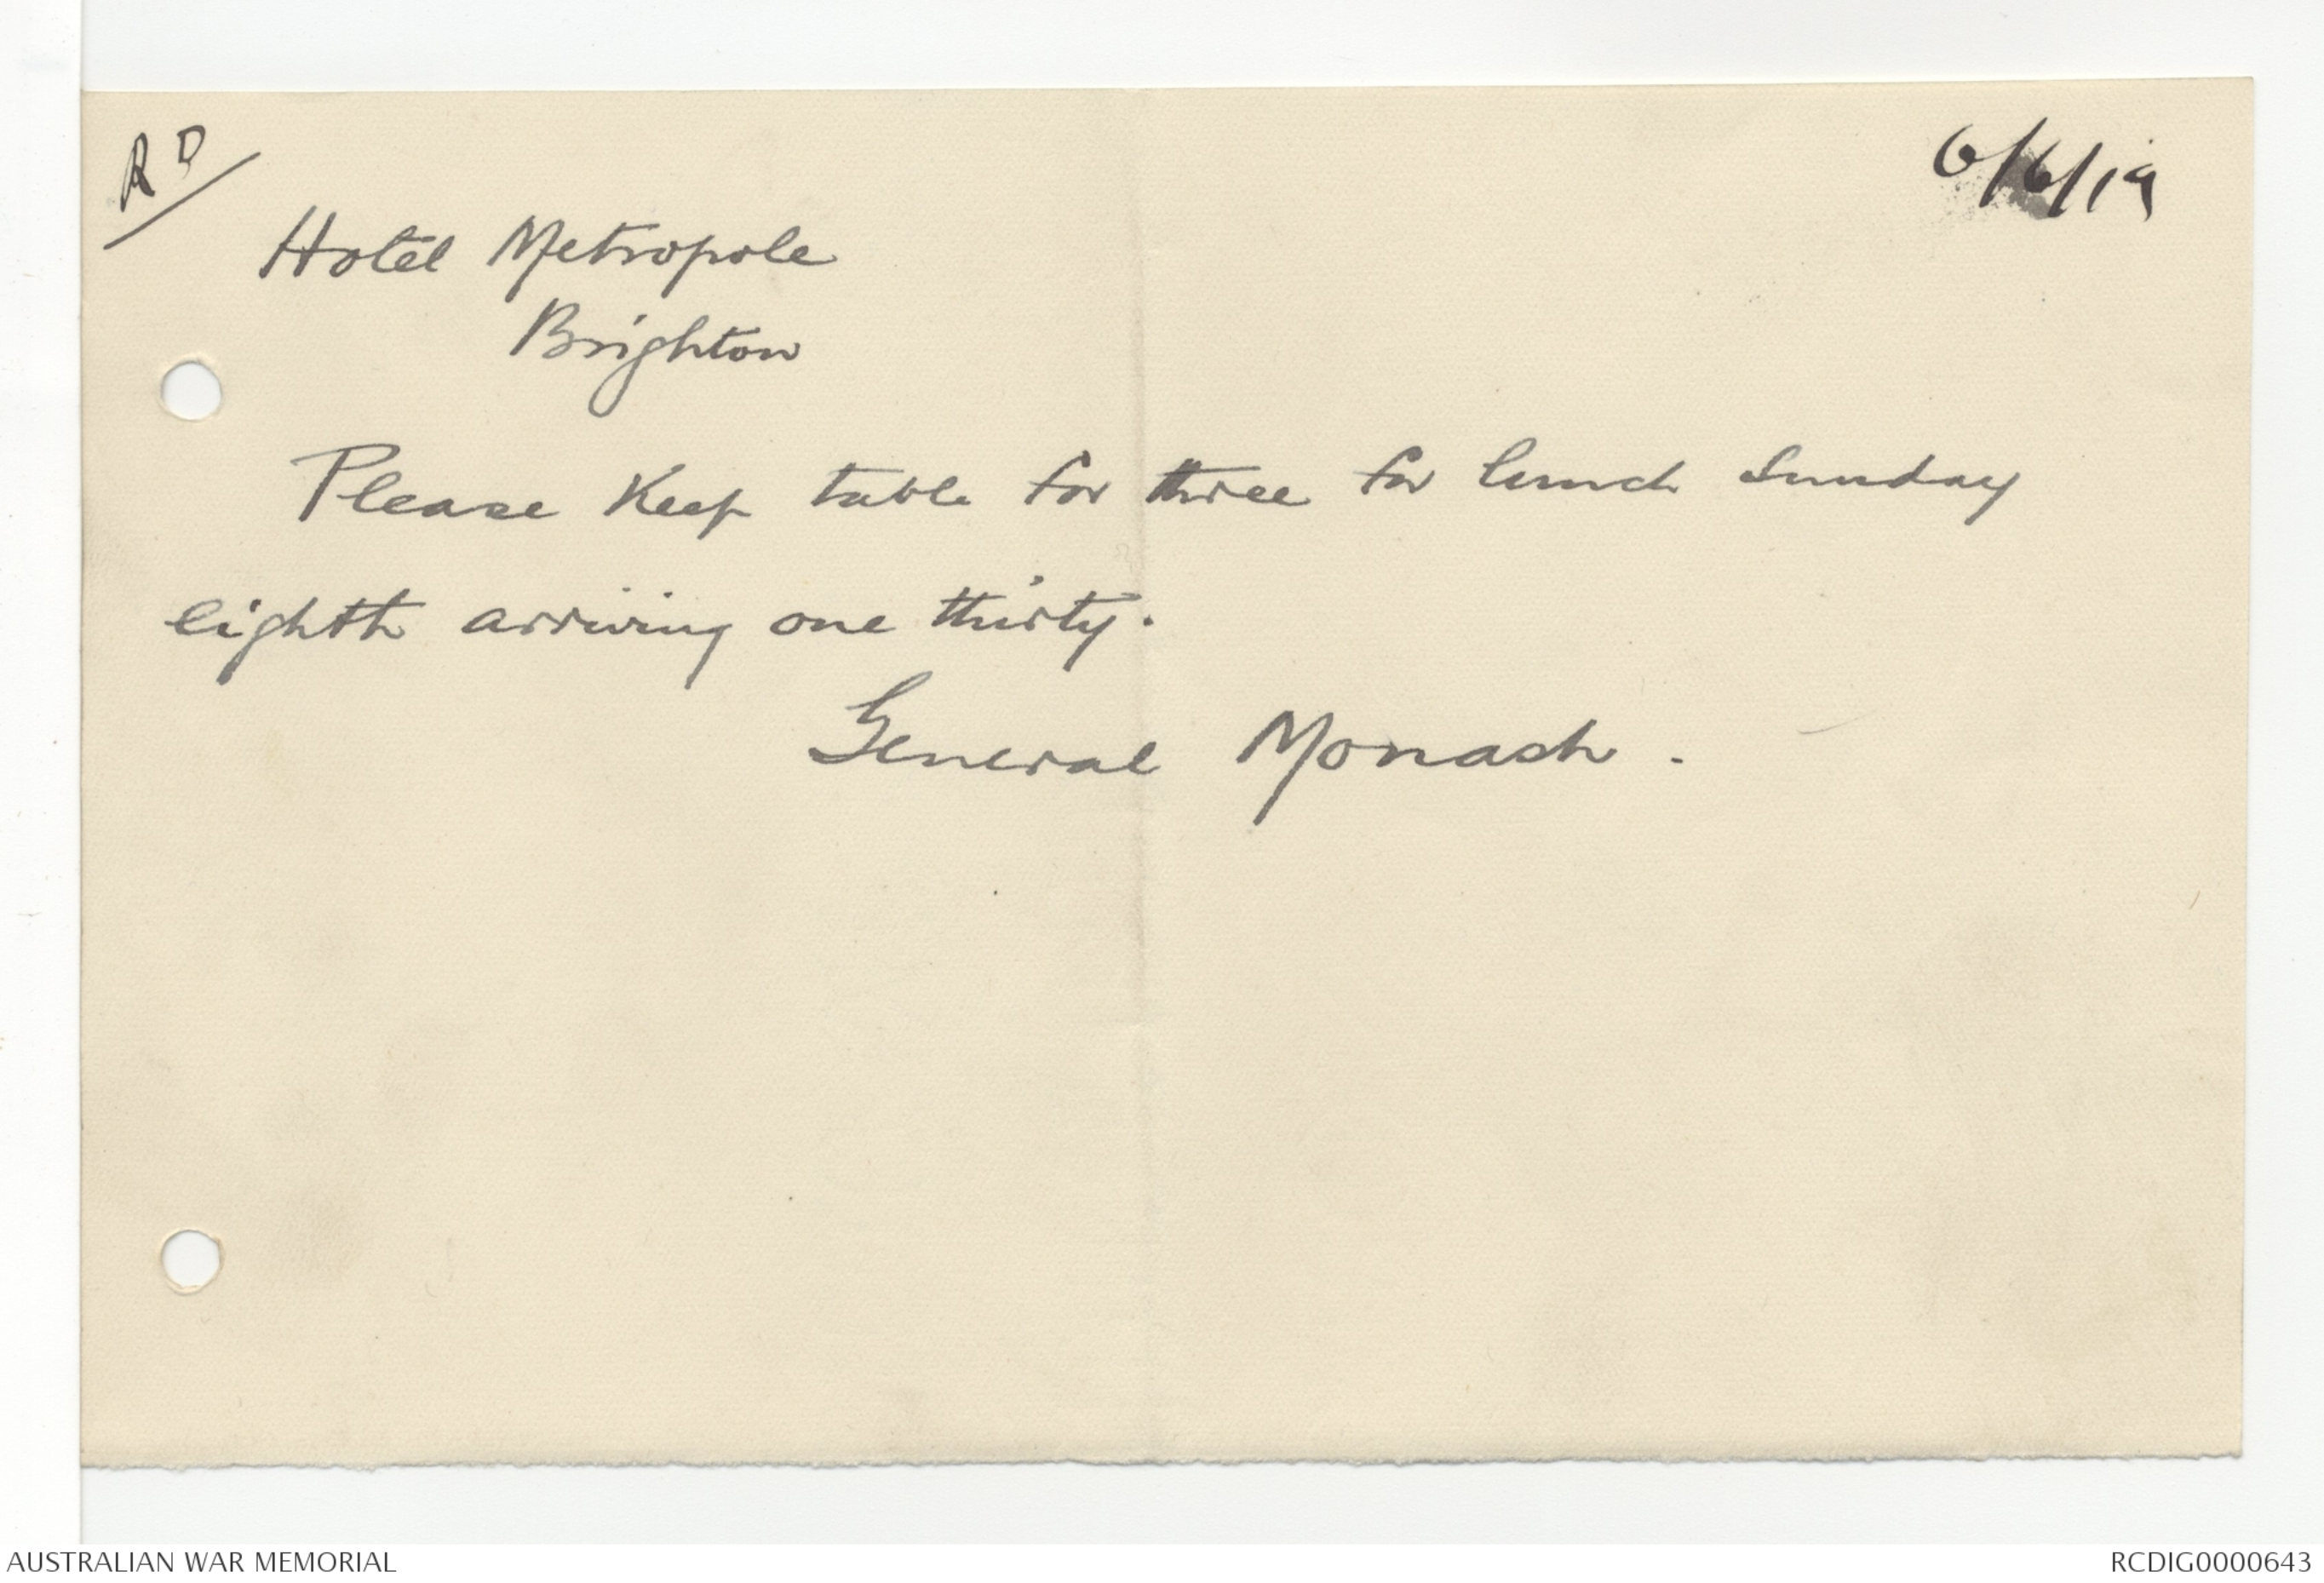 RD
6/6/19
Hotel Metropole
Brighton
Please keep table for three for lunch Sunday
eighth arriving one thirty.
General Monash.
AUSTRALIAN WAR MEMORIAL
RCDIG0000643